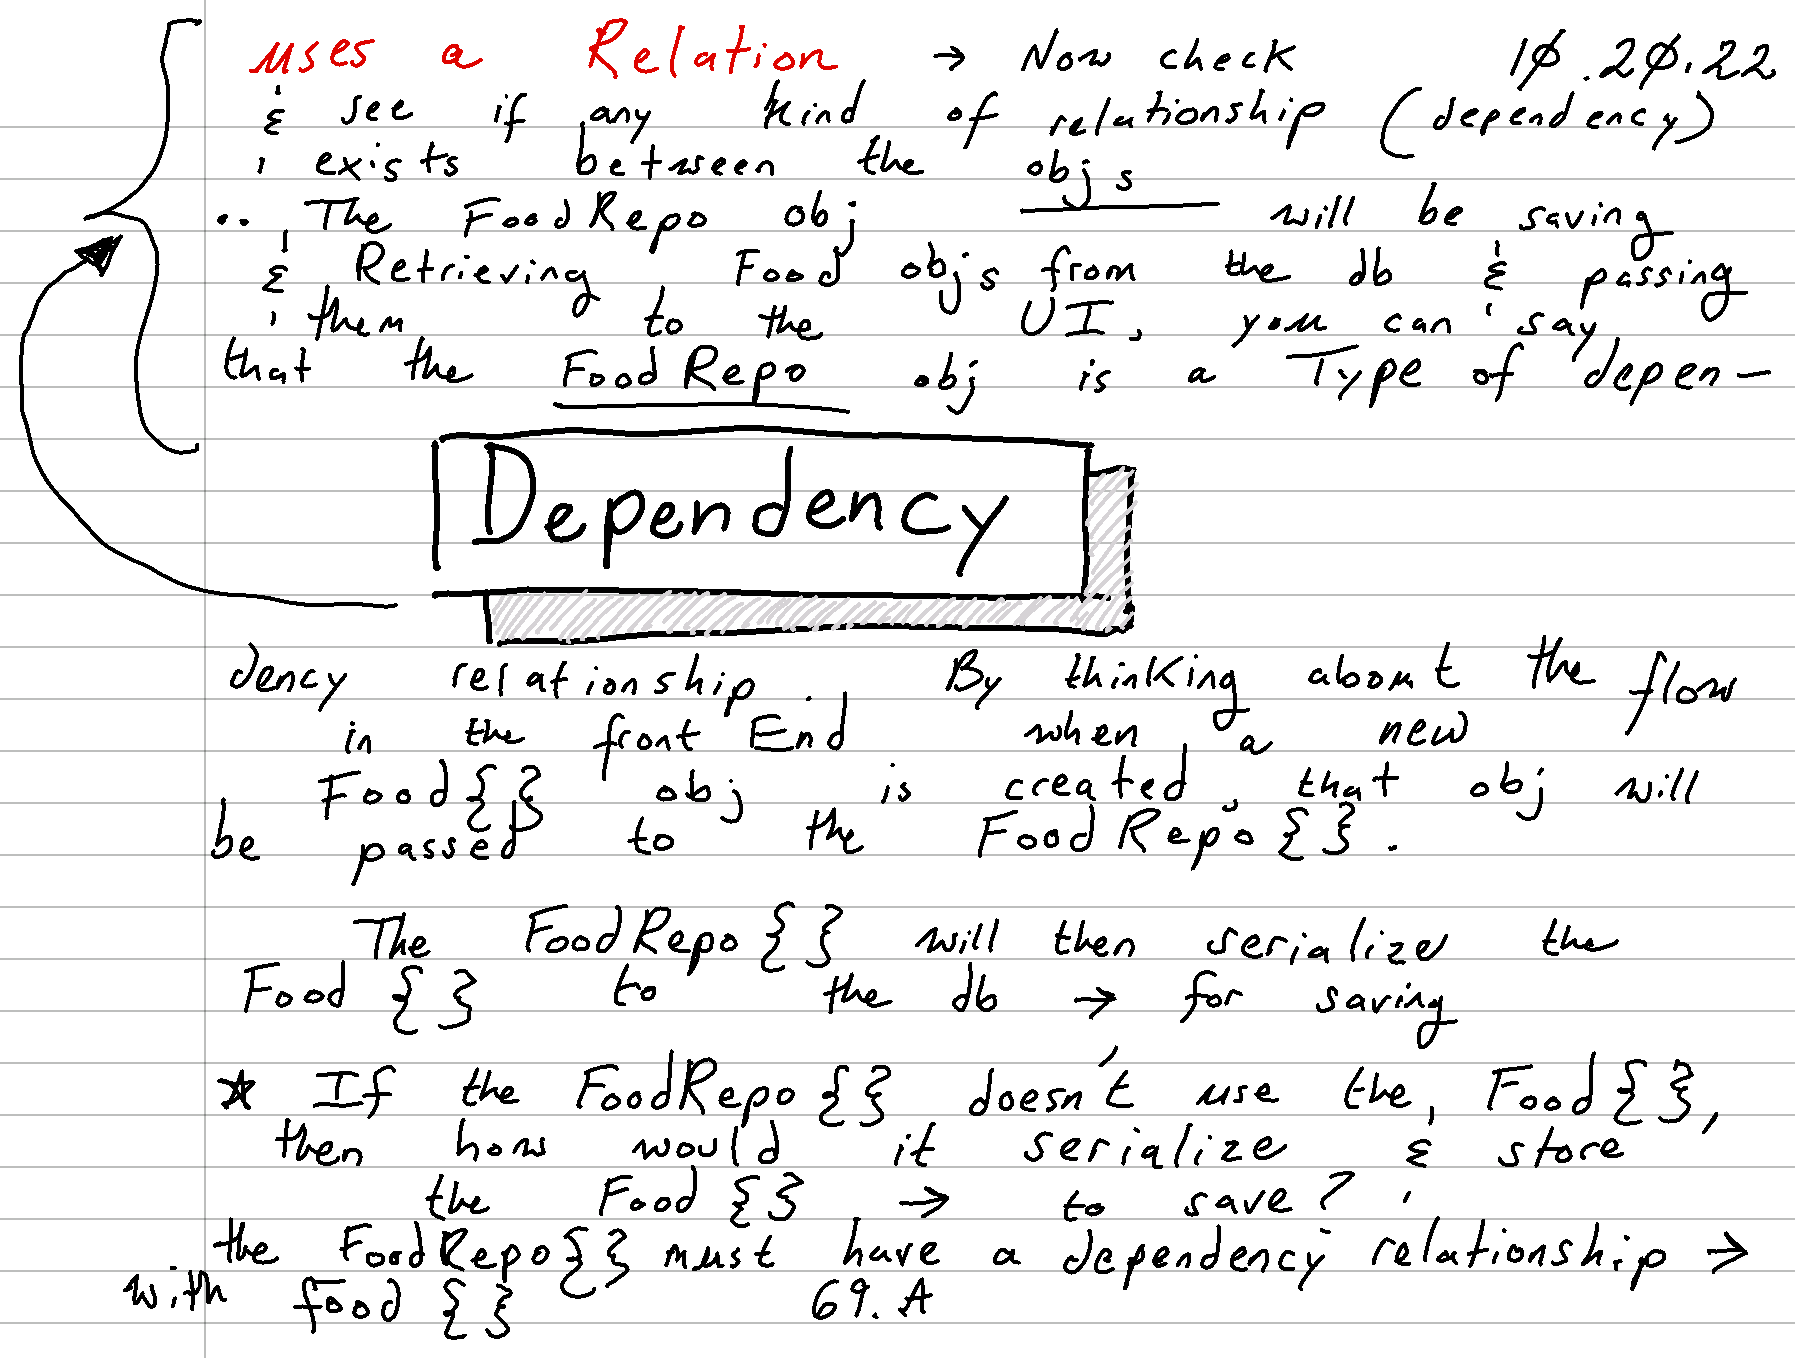 uses a Relation → Now check 10.20.22
& see if any kind of relationship (dependency)
exists between the objs
.. The FoodRepo obj will be saving
& Retrieving Food objs from the db & passing
them to the UI, you can say
that the FoodRepo obj is a Type of depen-
Dependency
dency relationship. By thinking about the flow
in the front End when a new
Food{} obj is created, that obj will
be passed to the FoodRepo{}.
The FoodRepo{} will then serialize the
Food {} to the db → for saving
★ If the FoodRepo{} doesn't use the Food{},
then how would it serialize & store
the Food {} → to save?
the FoodRepo{} must have a dependency relationship →
with food {} 69.A